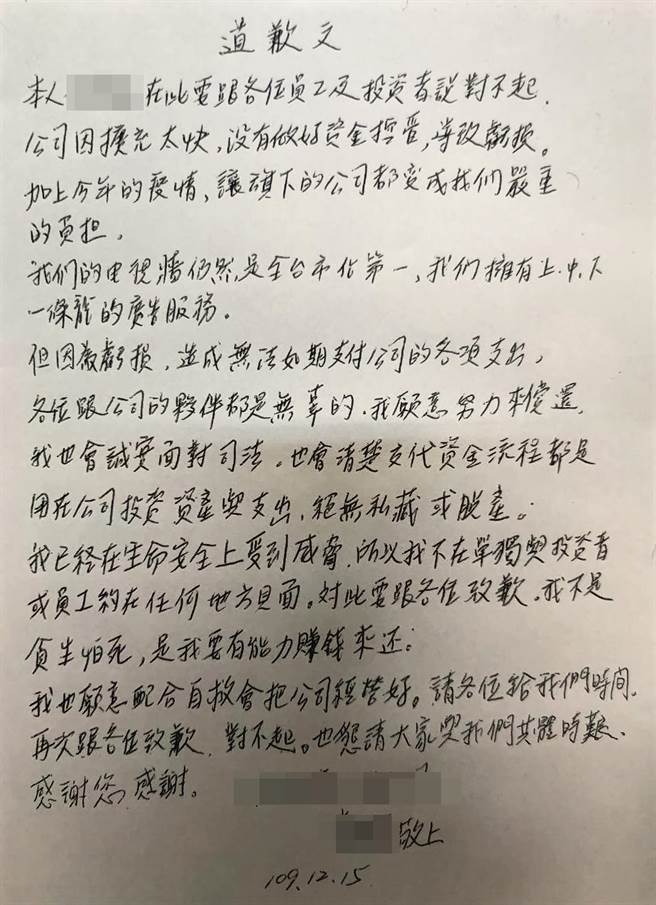 道歉文
本人 在此要跟各位員工及投資者說對不起.
公司因擴充太快,沒有做好資金控管,導致虧損。
加上今年的疫情、讓旗下的公司都变成我们嚴重
的負担.
我们的电視牆仍然是全台市佔第一,我們擁有上.中.下
一條龍的廣告服務。
但因為虧損,造成無法如期支付公司的各項支出,
各位跟公司的夥伴都是無辜的.我願意努力來償還.
我也會誠實面對司法。也會清楚交代資金流程都是
用在公司投資資產與支出,絕無私藏或脫產。
我已経在生命安全上受到威脅.所以我不在單獨與投資者
或員工約在任何地方見面。对此要跟各位致歉.我不是
貪生怕死,是我要有能力賺錢來还。
我也願意配合自救會把公司經營好。請各位給我們時間.
再次跟各位致歉.對不起。也懇請大家與我們共體時艱、
感謝您 感謝。
敬上
109.12.15